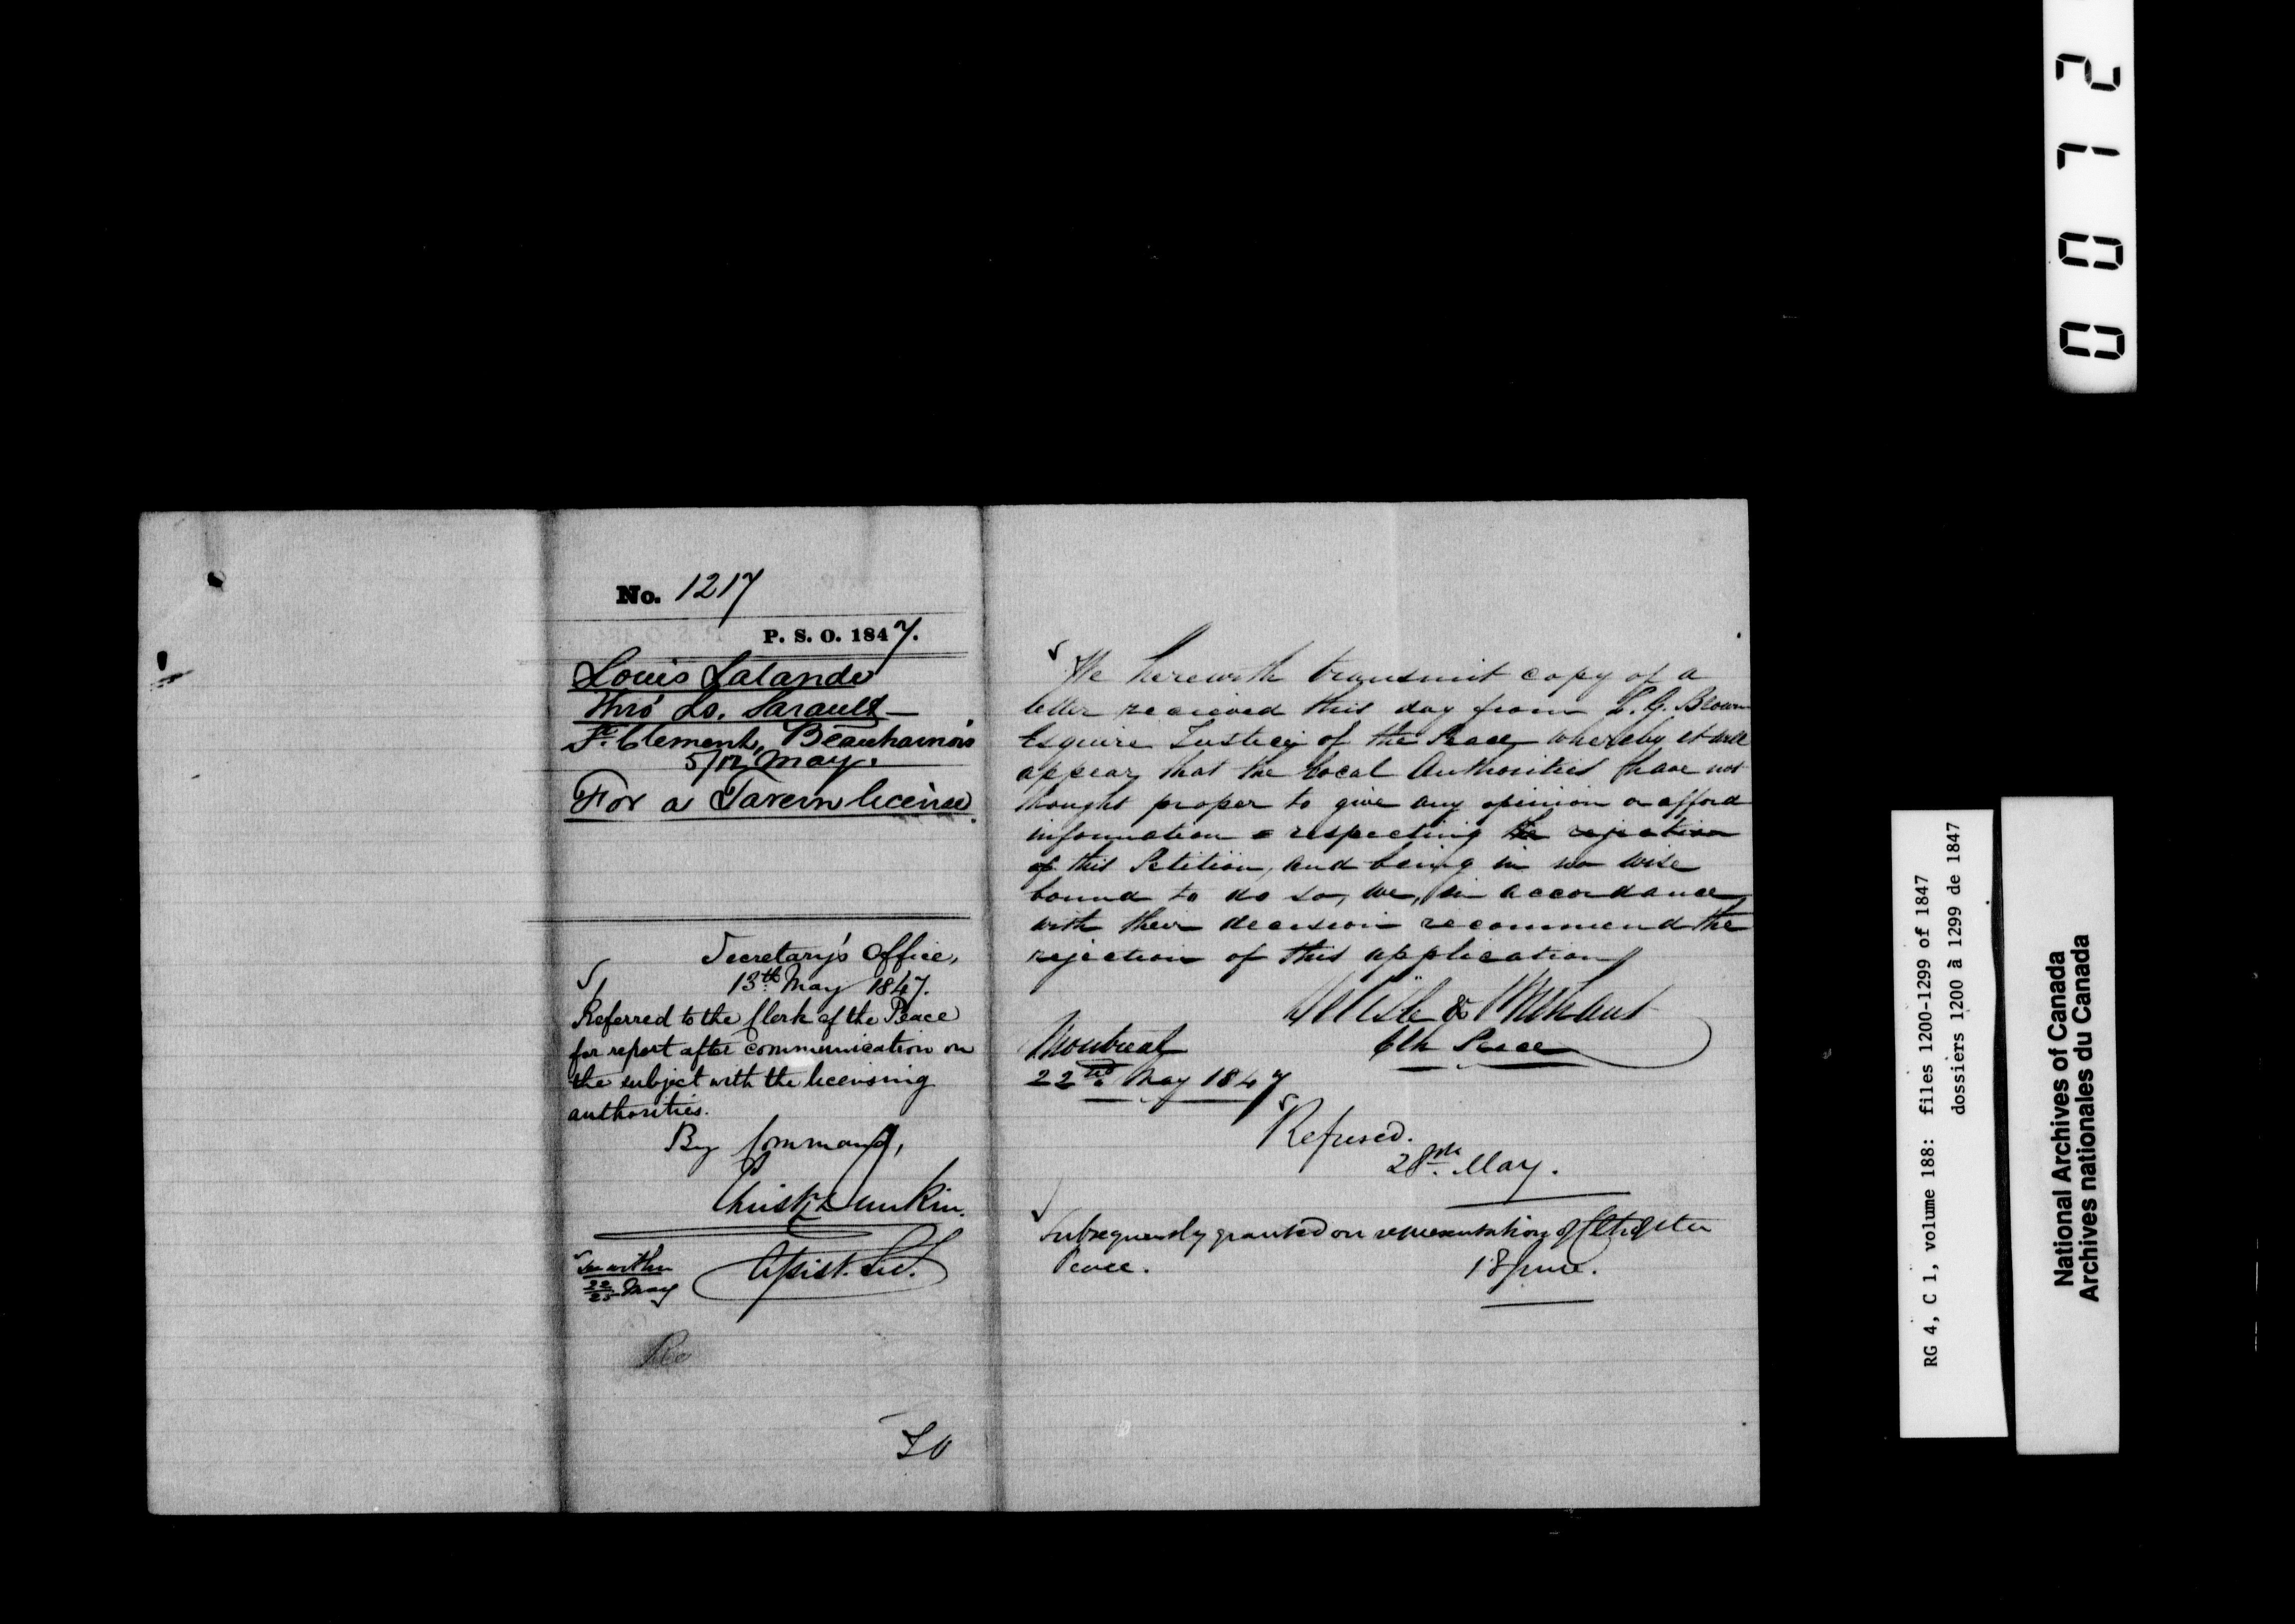 No. 1217
P. S. O. 1847.
Louis Lalande
Thro' Ls. Sarault
St. Clement, Beauharnois
5/12 May.
For a Tavern license.
Secretary's Office,
13th May 1847.
Referred to the Clerk of the Peace
for report after communication on
the subject with the licensing
authorities.
By Command,
Christ. Dunkin.
Assist. Sec.
See within
22/25 May
Re
We herewith transmit copy of a
letter recieved this day from L. G. Brown
Esquire Justice of the Peace whereby it will
appear that the local Authorities have not
thought proper to give any opinion or afford
information respecting the rejection
of this Petition, and being in no wise
bound to do so, we, in accordance
with their decision recommend the
rejection of this application
Delisle &
Clk Peace
Montreal
22nd May 1847
Refused.
28th May.
Subsequently granted on representation of
Peace.
18 June.
0012
RG 4, C 1, volume 188: files 1200-1299 of 1847
dossiers 1200 à 1299 de 1847
National Archives of Canada
Archives nationales du Canada